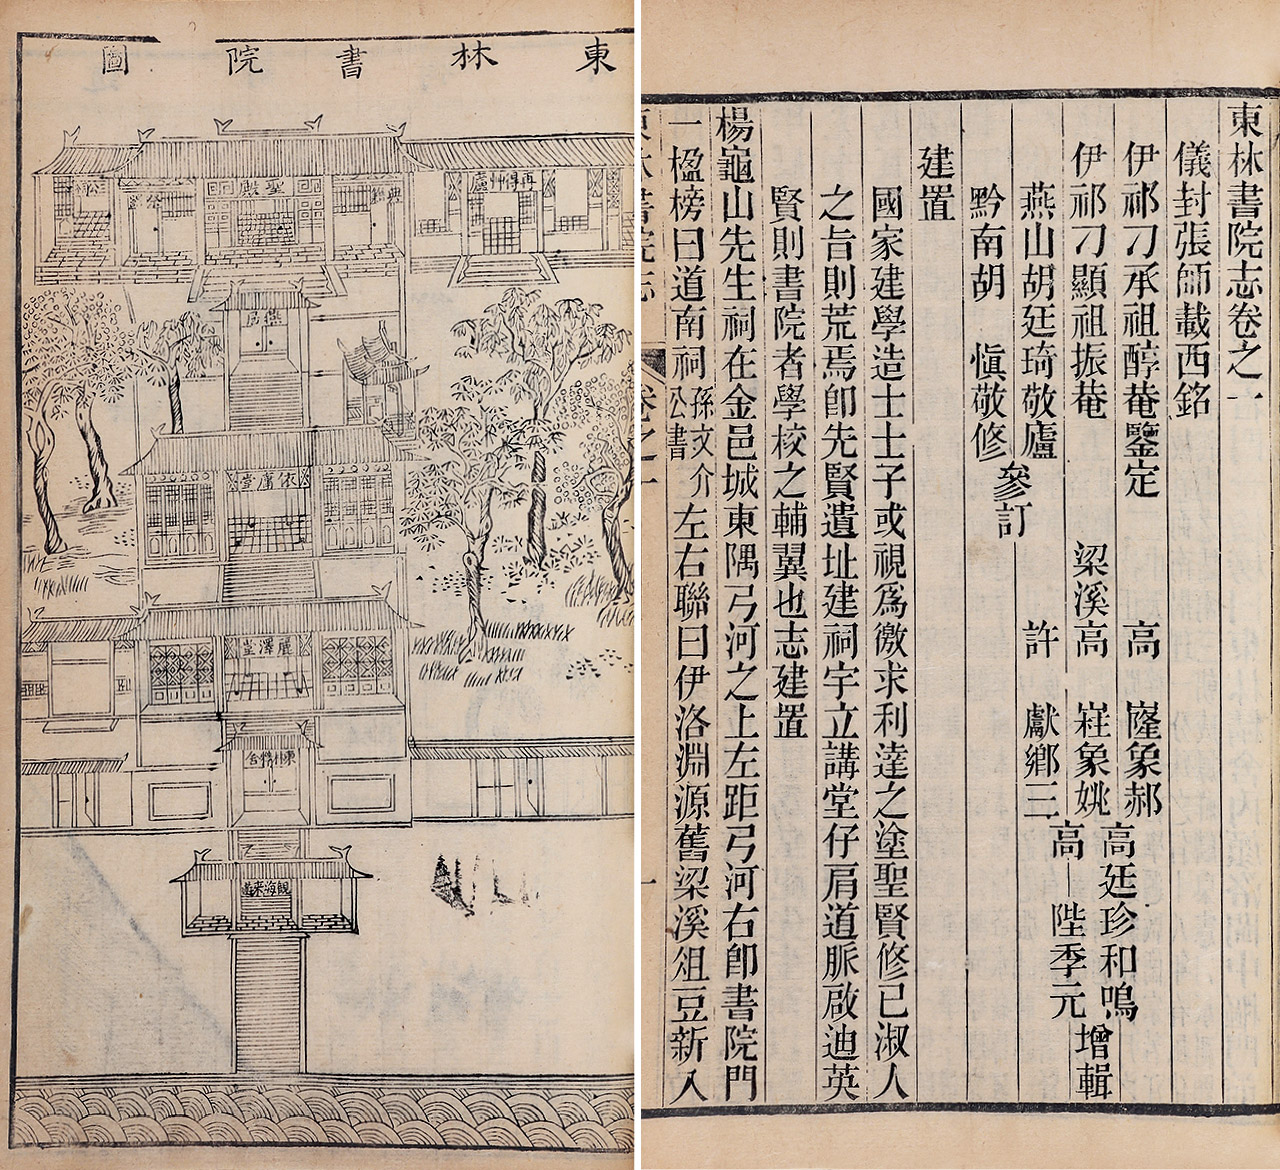 東林書院圖
再得艸廬
聖殿
典籍
燕居
依庸堂
麗澤堂
東林精舍
觀海來遊
東林書院志卷之一
儀封張師載西銘
伊祁刁承祖醇菴鑒定
伊祁刁顯祖振菴
燕山胡廷琦敬廬
黔南胡 慎敬修
參訂
高 㟅象郝
梁溪高 嵀象姚
許 獻鄉三
高廷珍和鳴
高 陛季元
增輯
建置
國家建學造士士子或視為徼求利達之塗聖賢修己淑人
之旨則荒焉卽先賢遺址建祠宇立講堂仔肩道脈啟迪英
賢則書院者學校之輔翼也志建置
楊龜山先生祠在金邑城東隅弓河之上左距弓河右卽書院門
一楹榜曰道南祠孫文介公書左右聯曰伊洛淵源舊梁溪俎豆新入
東林書院志 卷之一 一